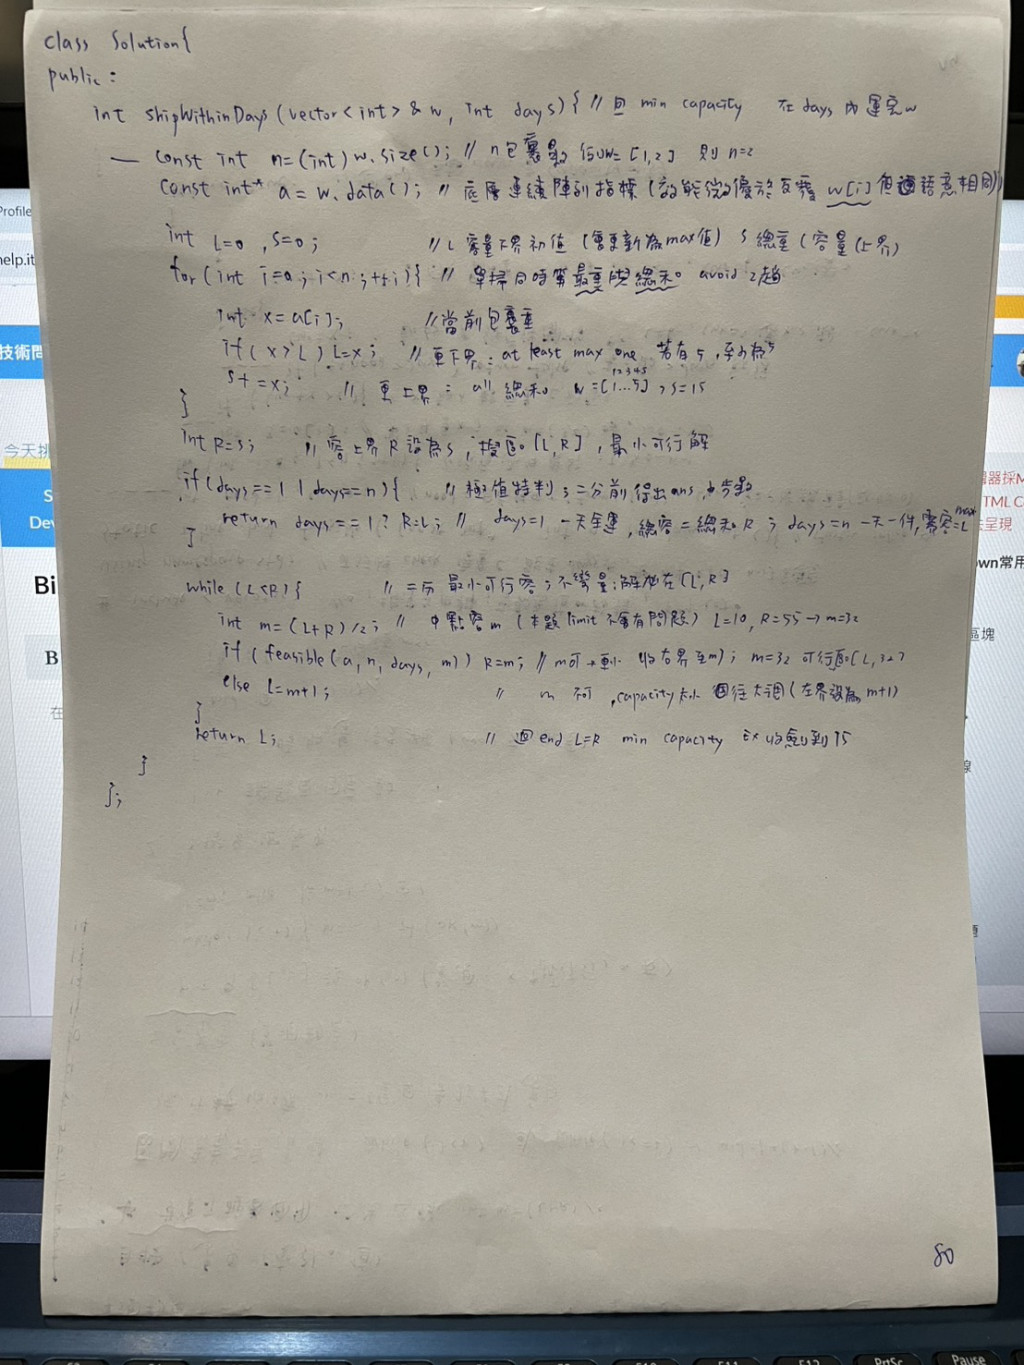 class Solution{
public:
int shipWithinDays(vector<int>& w, int days){ // 回 min capacity 在 days 內運完 w
const int n=(int)w.size(); // n包裹數 例w=[1,2] 則 n=2
const int* a = w.data(); // 底層連續陣列指標(效能微優於反覆 w[i] 但語意相同)
int L=0, S=0; // L 容量下界初值(會更新為max值) S 總重(容量上界)
for(int i=0; i<n; ++i){ // 單掃同時算最重與總和。avoid 2趟
int x = a[i]; // 當前包裹重
if(x>L) L=x; // 更下界: at least max one 若有5,至少為5
S+=x; // 更上界: all 總和。 w=[1...5], S=15
12345
}
int R=S; // 容上界 R 設為 S, [L,R], 最小可行解
if(days==1||days==n){ // 極值特判; 二分前得出ans,少步數
return days==1? R:L; // days=1 一天全運,總容=總和R; days=n 一天一件,需容=L
max
}
while(L<R){ // 二分 最小可行容;不變量:解都在[L,R]
int m=(L+R)/2; // 中點容m(本題limit不會有問題) L=10, R=55→m=32
if(feasible(a,n,days,m)) R=m; // m可→更小 收右界至m); m=32 可行[L,32]
else L=m+1; // m 不可,capacity太小 往大調(左界設為m+1)
}
return L; // 迴end L=R min capacity Ex 收斂到15
}
};
80
技術問
今天挑
Dev
Bi
B
在
help.it
Profile
區塊
呈現
own常用
PrtSc
Pause